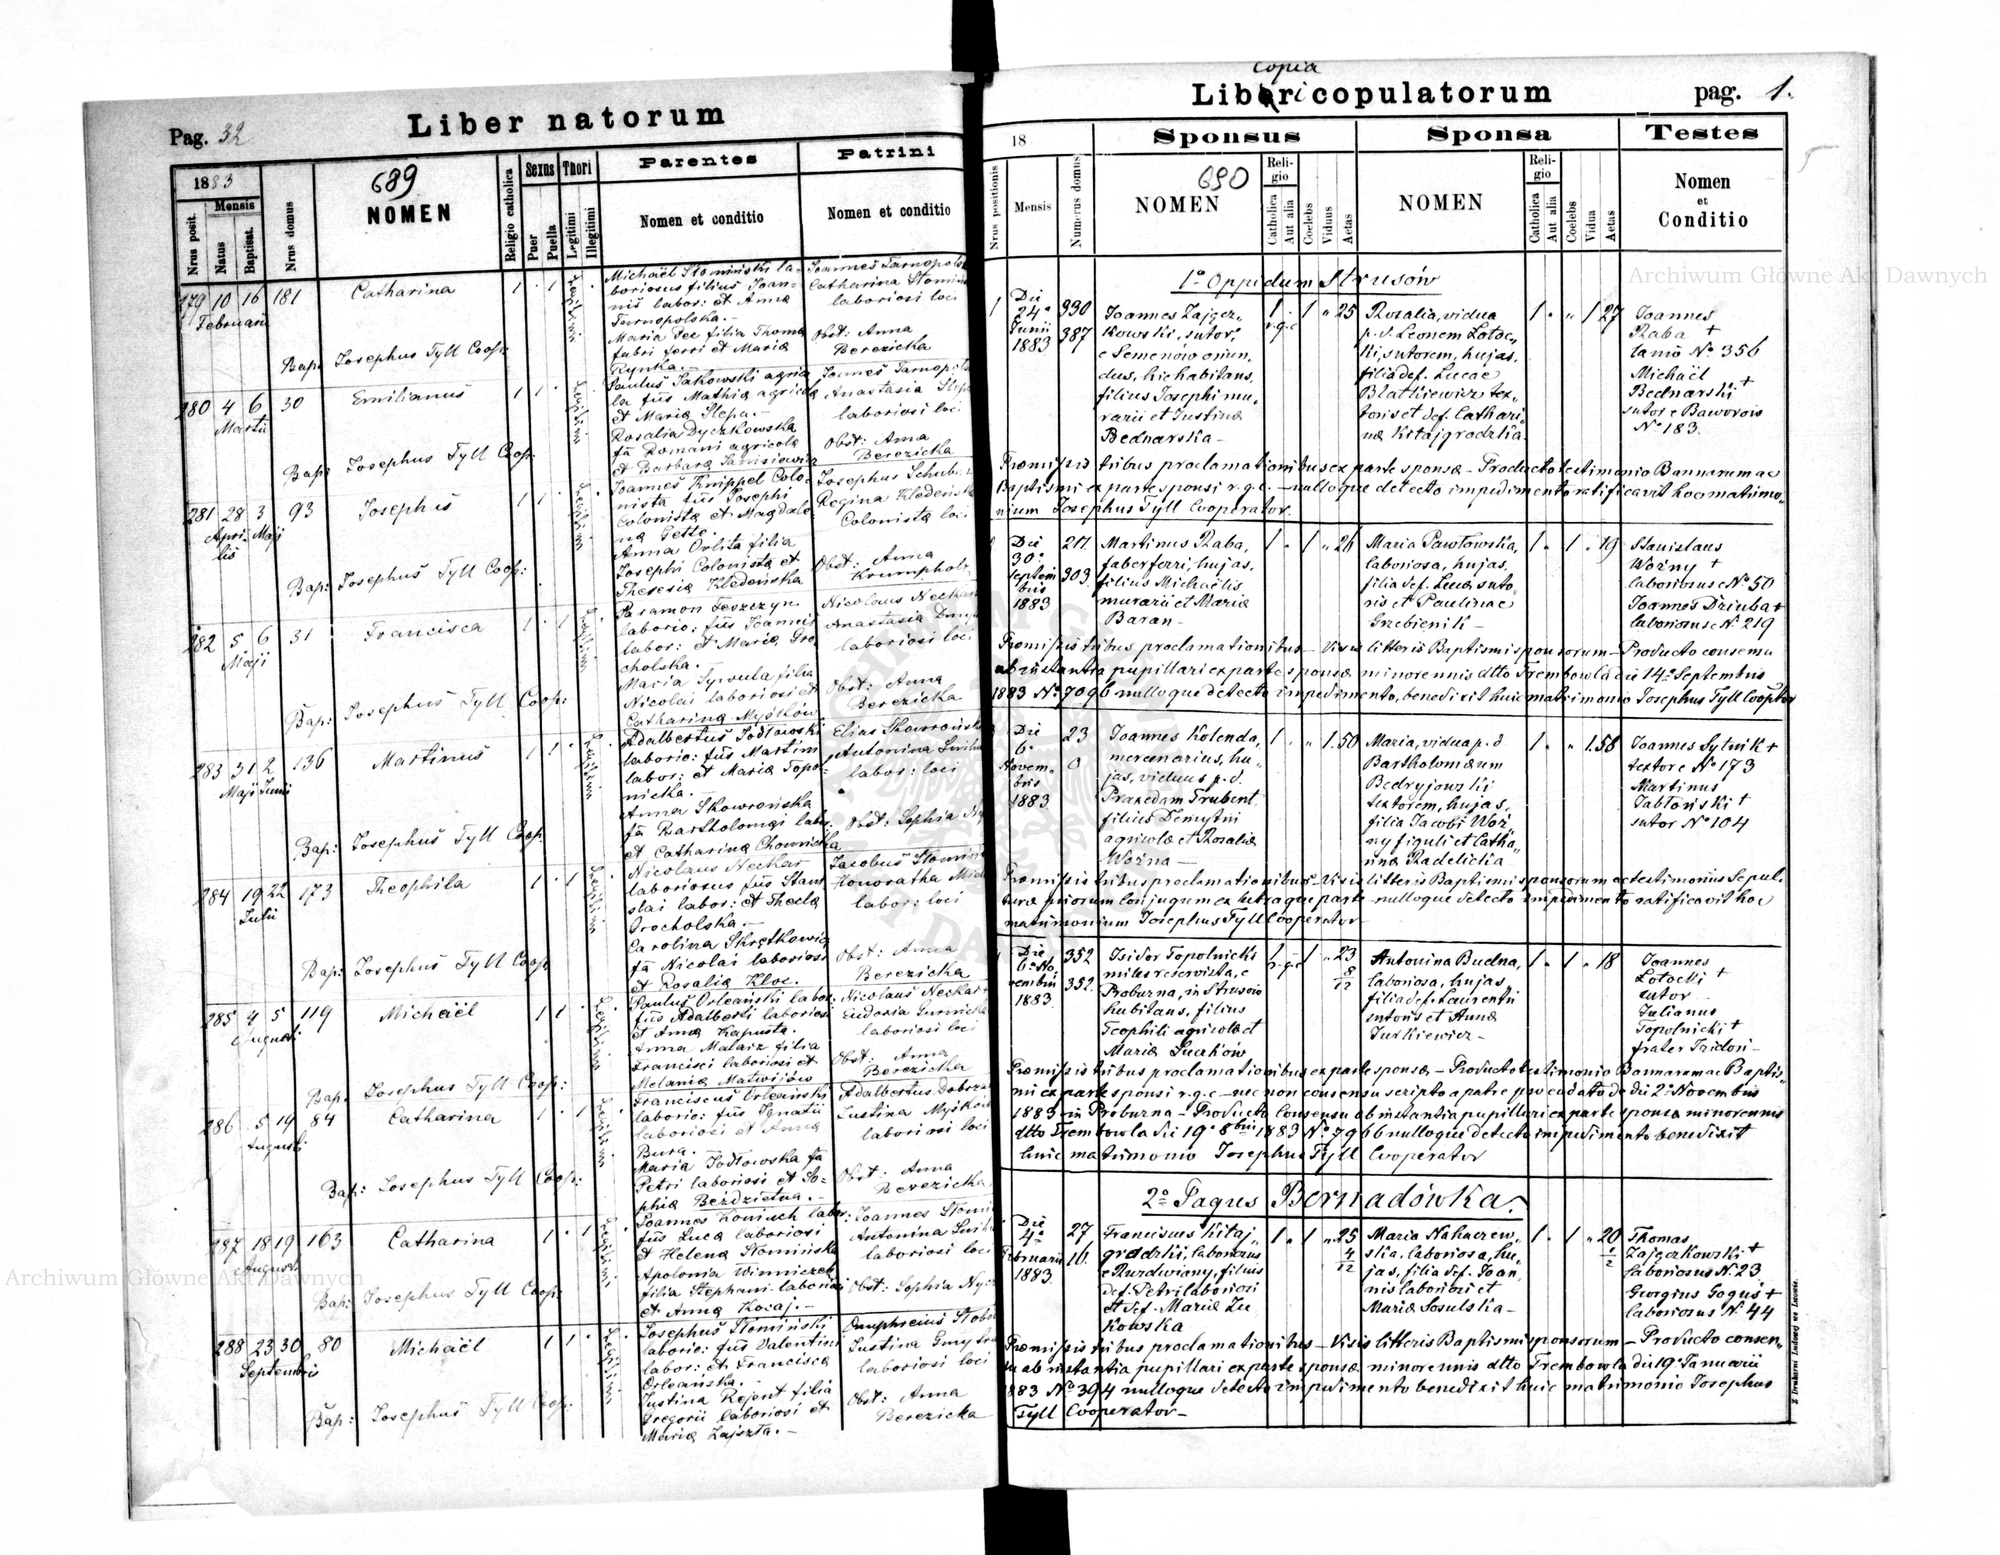 Liber natorum
Pag. 32
1883
689
Nrus posit.
Mensis
Natus
Baptisat.
Nrus domus
NOMEN
Religio catholica
Sexus
Puer
Puella
Thori
Legitimi
Illegitimi
Parentes
Nomen et conditio
Patrini
Nomen et conditio
279 10 16 181 Catharina 1 . 1
Februarii
Michaël Słomiński la-
boriosus filius Joan-
nis labor: et Anna
Tarnopolska.-
Maria Fec filia Thoma
fabri ferri et Maria
Rynka.-
Joannes Tarnopols
Catharina Słomins
laboriosi loci
Obst: Anna
Berezicka
Bap: Josephus Tyll Coop:
280 4 6 30 Emilianus 1 1 .
Martii
Paulus Sakowski agrico
la fus Mathiæ agricolæ
et Maria Slepa.-
Rosalia Dyczkowska
fa Romani agricolæ
et Barbara Janisiewicz
Joannes Tarnopols
Anastasia Slepa
laboriosi loci
Obst: Anna
Berezicka
Bap: Josephus Tyll Coop:
281 28 3 93 Josephus 1 1 .
Apri- Maji
lis
Joannes Knippel Colo-
nista fus Josephi
Colonistæ et Magdale-
na Tette.
Anna Orlita filia
Josephi Colonistæ et
Theresia Kledeńska
Josephus Schub
Regina Kledeńska
Colonistæ loci
Obst: Anna
Krumpholz
Bap: Josephus Tyll Coop:
282 5 6 31 Francisca 1 . 1
Maji
Paramon Feszczyn
laborio: fus Joannis
labor: et Maria Gro-
cholska.-
Maria Sywula filia
Nicolai laboriosi et
Catharina Myśków
Nicolaus Neckar
Anastasia Dmy
laboriosi loci
Obst: Anna
Berezicka
Bap: Josephus Tyll Coop:
283 31 2 136 Martinus 1 1 .
Maji Junii
Adalbertus Jodłowski
laborio: fus Martini
labor: et Maria Topol-
nicka.-
Anna Skowrońska
fa Bartholomæi labor:
et Catharina Chownicka
Elias Skowrońsk
Antonina Smih
labor: loci
Obst: Sophia Ny
Bap: Josephus Tyll Coop:
284 19 22 173 Theophila 1 . 1
Julii
Nicolaus Neckar
laboriosus fus Stani-
slai labor: et Thecla
Grocholska.-
Carolina Skrętkowicz
fa Nicolai laboriosi
et Rosalia Kloc.
Jacobus Słomińs
Honoratha Mich
labor: loci
Obst: Anna
Berezicka
Bap: Josephus Tyll Coop:
285 4 5 119 Michaël 1 1
Augusti
Paulus Orleański labor:
fus Adalberti laboriosi
et Anna Kapusta.
Anna Malarz filia
Francisci laboriosi et
Melania Matwijów
Nicolaus Neckar
Eudoxia Gurnicka
laboriosi loci
Obst: Anna
Berezicka
Bap: Josephus Tyll Coop:
286 5 19 84 Catharina 1 . 1
Augusti
Franciscus Orleański
laborio: fus Ignatii
laboriosi et Anna
Bura.
Maria Jodłowska fa
Petri laboriosi et So-
phia Bezdzietna.-
Adalbertus Dobrza
Justina Myśków
laboriosi loci
Obst: Anna
Berezicka
Bap: Josephus Tyll Coop:
287 18 19 163 Catharina 1 . 1
Augusti
Joannes Koniuch labor:
fus Luca laboriosi
et Helena Słomińska
Apolonia Winniczek
filia Stephani laboriosi
et Anna Kocaj.-
Joannes Słomiń
Antonina Smih
laboriosi loci
Obst: Sophia Nycz
Bap: Josephus Tyll Coop:
288 23 30 80 Michaël 1 1 .
Septembris
Josephus Słomiński
laborio: fus Valentini
labor: et Francisca
Orleańska.-
Justina Rejent filia
Gregorii laboriosi et
Maria Zajszta.-
Onuphrius Słobo
Justina Gmytro
laboriosi loci
Obst: Anna
Berezicka
Bap: Josephus Tyll Coop:
Copia
Libri copulatorum
pag. 1.
18
690
Nrus positionis
Mensis
Numerus domus
Sponsus
NOMEN
Religio
Catholica
Aut alia
Coelebs
Viduus
Aetas
Sponsa
NOMEN
Religio
Catholica
Aut alia
Coelebs
Vidua
Aetas
Testes
Nomen
et
Conditio
1º Oppidum Strusów
1
Die
24ª
Junii
1883
330
387
Joannes Zającz„
kowski, sutor,
e Semenów oriun„
dus, hic habitans,
filius Josephi mu„
rarii et Justina
Bednarska -
1 . 1 „ 25
r.g.c
Rosalia, vidua
p.d. Leonem Łotoc„
ki, sutorem, hujas,
filia def. Lucae
Blatkiewicz tex„
toris et def. Cathari„
na Kitajgrodzka
1 . „ 1 27
Joannes
Raba +
lanio Nº 356
Michaël
Bednarski +
sutor e Baworów
Nº 183.
Præmissis tribus proclamationibus ex parte sponsæ - Producto testimonio Bannorum ac
Baptismi ex parte sponsi r.g.c. - nulloque detecto impedimento ratificavit hoc matrimo„
nium Josephus Tyll Cooperator.
Die
30ª
Septem
bris
1883
217.
303.
Martinus Raba,
faber ferri, hujas,
filius Michaëlis
murarii et Maria
Baran -
1 . 1 „ 26
Maria Pawłowska,
laboriosa, hujas,
filia def. Luca suto„
ris et Paulinae
Grzebienik -
1 . 1 . 19
Stanislaus
Woźny +
laboriosus e Nº 50
Joannes Dziuba +
laboriosus e Nº 219
Præmissis tribus proclamationibus - Visis litteris Baptismi sponsorum - Producto consensu
ab instantia pupillari ex parte sponsæ minorennis dtto Trembowla die 14ª Septembris
1883 Nº 7096 nulloque detecto impedimento, benedixit huic matrimonio Josephus Tyll Cooptor
3
Die
6ª
Novem„
bris
1883
23
0
Joannes Kolenda,
mercenarius, hu„
jas, viduus p.d.
Praxedam Trubent
filius Demytri
agricolæ et Rosaliæ
Woźna -
1 . „ 1. 50
Maria, vidua p.d.
Bartholomæum
Bedryjowski
textorem, hujas,
filia Jacobi Woź„
ny figuli et Catha„
rina Radelicka
1 . „ 1. 58
Joannes Sytnik +
textore Nº 173
Martinus
Jabłoński +
sutor Nº 104
Præmissis tribus proclamationibus - Visis litteris Baptismi sponsorum ac testimoniis Sepul„
turæ priorum Conjugum ex utraque parte - nulloque detecto impedimento ratificavit hoc
matrimonium Josephus Tyll Cooperator
Die
6ª No„
vembris
1883.
352
352.
Isidor Topolnicki
miles reservista, e
Proburna, in Strusów
habitans, filius
Teophili agricolæ et
Maria Łuczków
1 . 1 „ 23 8/12
r.g.c
Antonina Budna,
laboriosa, hujas,
filia def. Laurentii
sutoris et Anna
Jurkiewicz -
1 . 1 . 18
Joannes
Łotocki +
sutor
Julianus
Topolnicki +
frater Isidori -
Præmissis tribus proclamationibus ex parte sponsæ - Producto testimonio Bannorum ac Baptis„
mi ex parte sponsi r.g.c. - nec non consensu scripto a patre pro eo dato de die 2ª Novembris
1883 in Proburna - Producto Consensu ab instantia pupillari ex parte sponsæ minorennis
dtto Trembowla die 19ª 8bris 1883 Nº 7966 nulloque detecto impedimento benedixit
huic matrimonio Josephus Tyll Cooperator
2º Pagus Bernadówka.
Die
4ª
Februarii
1883
27
16.
Franciscus Kitaj„
grodzki, laboriosus
e Ruzdwiany, filius
def. Petri laboriosi
et def. Maria Zu
kowska
1 . 1 „ 25 4/12
Maria Nahaczew„
ska, laboriosa, hu„
jas, filia def. Joan„
nis laboriosi et
Maria Sosulska -
1 . 1 . 20 1/2
Thomas
Zajączkowski +
laboriosus N. 23
Georgius Goguś +
laboriosus N. 44
Præmissis tribus proclamationibus - Visis litteris Baptismi sponsorum - Producto consen„
su ab instantia pupillari ex parte sponsæ minorennis dtto Trembowla die 19ª Januarii
1883 Nº 394 nulloque detecto impedimento benedixit huic matrimonio Josephus
Tyll Cooperator -
Z Drukarni Ludowej we Lwowie.
Archiwum Główne Akt Dawnych
Archiwum Główne Akt Dawnych